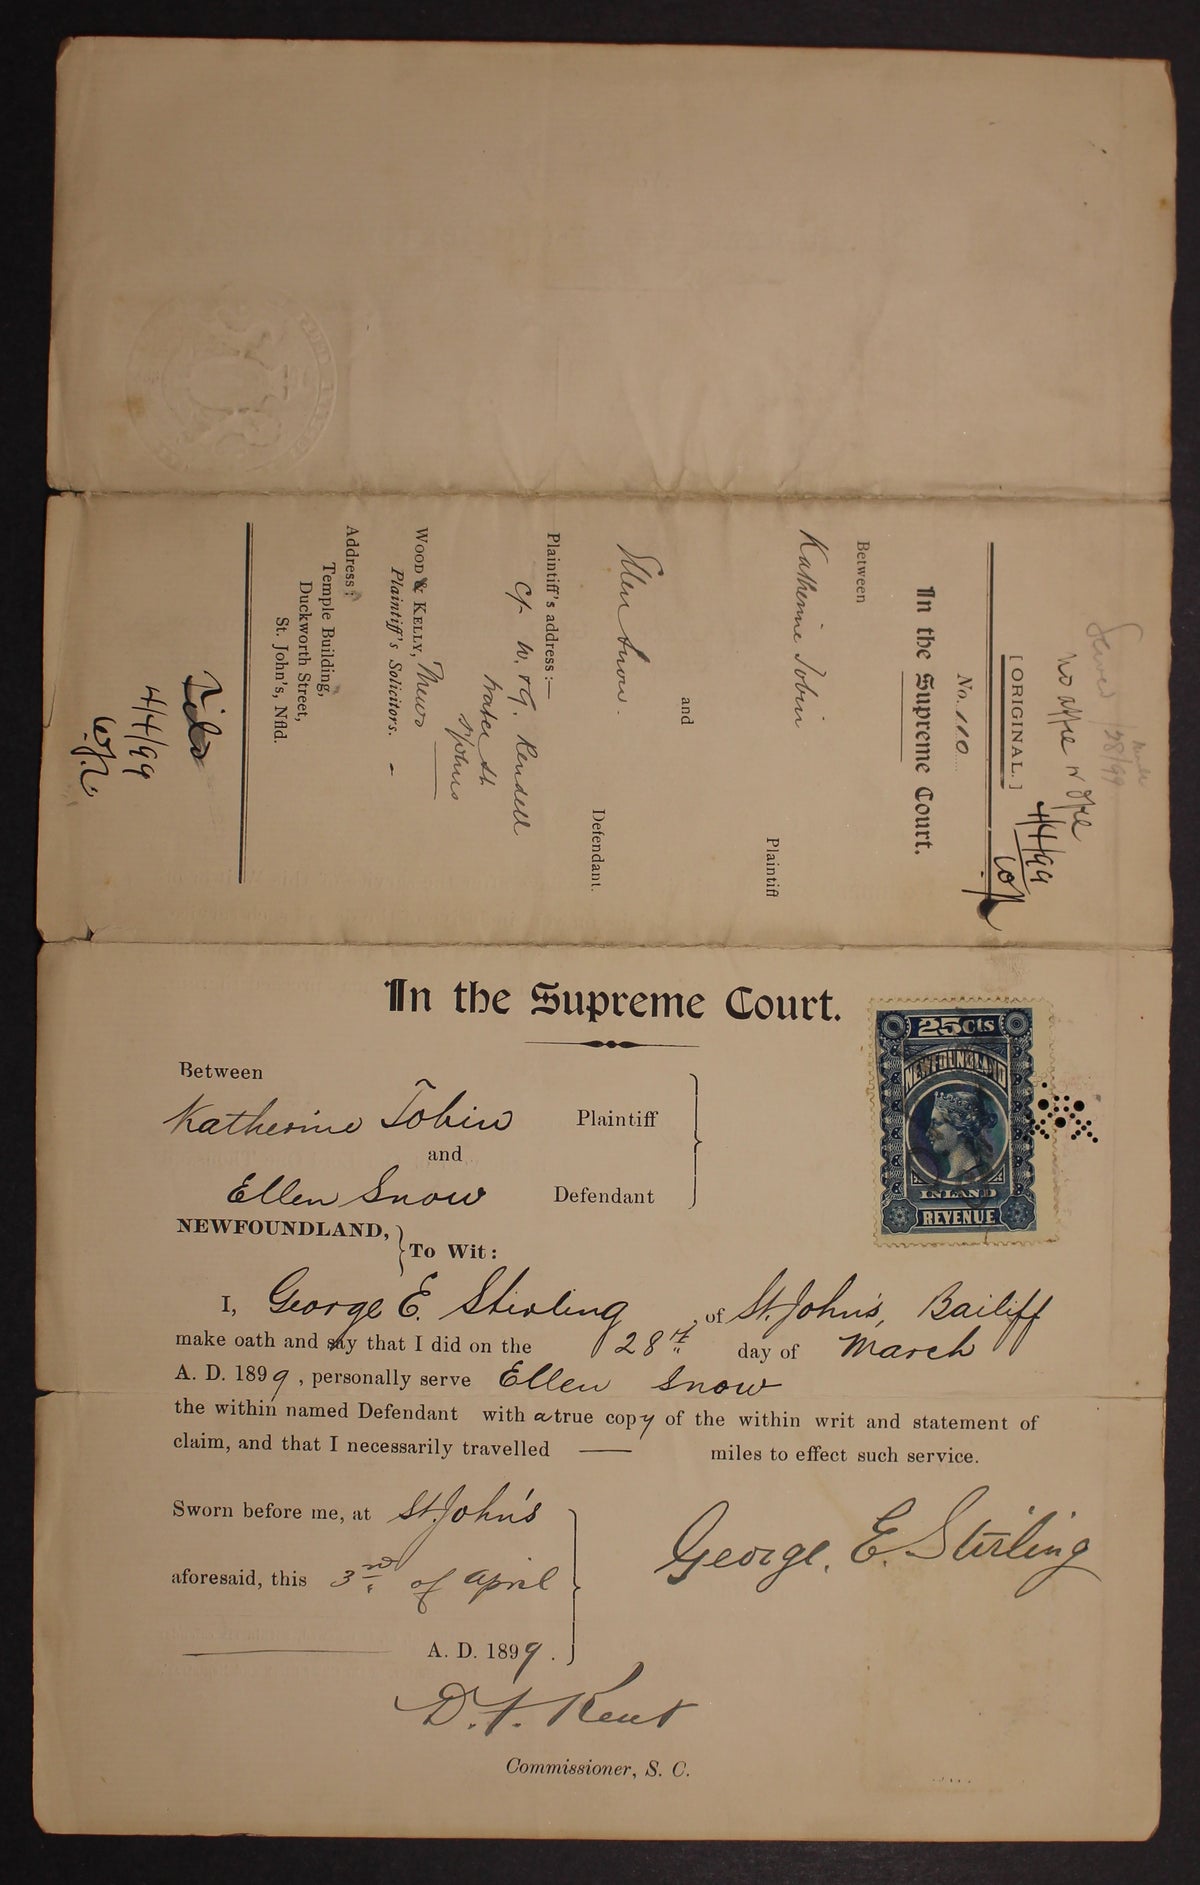 Served 28/99
4/4/99
[ ORIGINAL. ]
No. 110
In the Supreme Court.
Between
Katherine Tobin
Plaintiff
and
Ellen Snow.
Defendant.
Plaintiff's address:—
W. & G. Rendell
Water St.
St Johns
WOOD & KELLY,
Plaintiff's Solicitors.
Address:
Temple Building,
Duckworth Street,
St. John's, Nfld.
4/4/99
In the Supreme Court.
25 Cts
NEWFOUNDLAND
INLAND
REVENUE
Between
Katherine Tobin Plaintiff
and
Ellen Snow Defendant
NEWFOUNDLAND,
To Wit:
I, George E. Stirling, of St. John's, Bailiff
make oath and say that I did on the 28th day of March
A. D. 1899, personally serve Ellen Snow
the within named Defendant with a true copy of the within writ and statement of
claim, and that I necessarily travelled —— miles to effect such service.
Sworn before me, at St. John's
aforesaid, this 3rd of April
A. D. 1899.
George. E. Stirling
D. J. Kent
Commissioner, S. C.